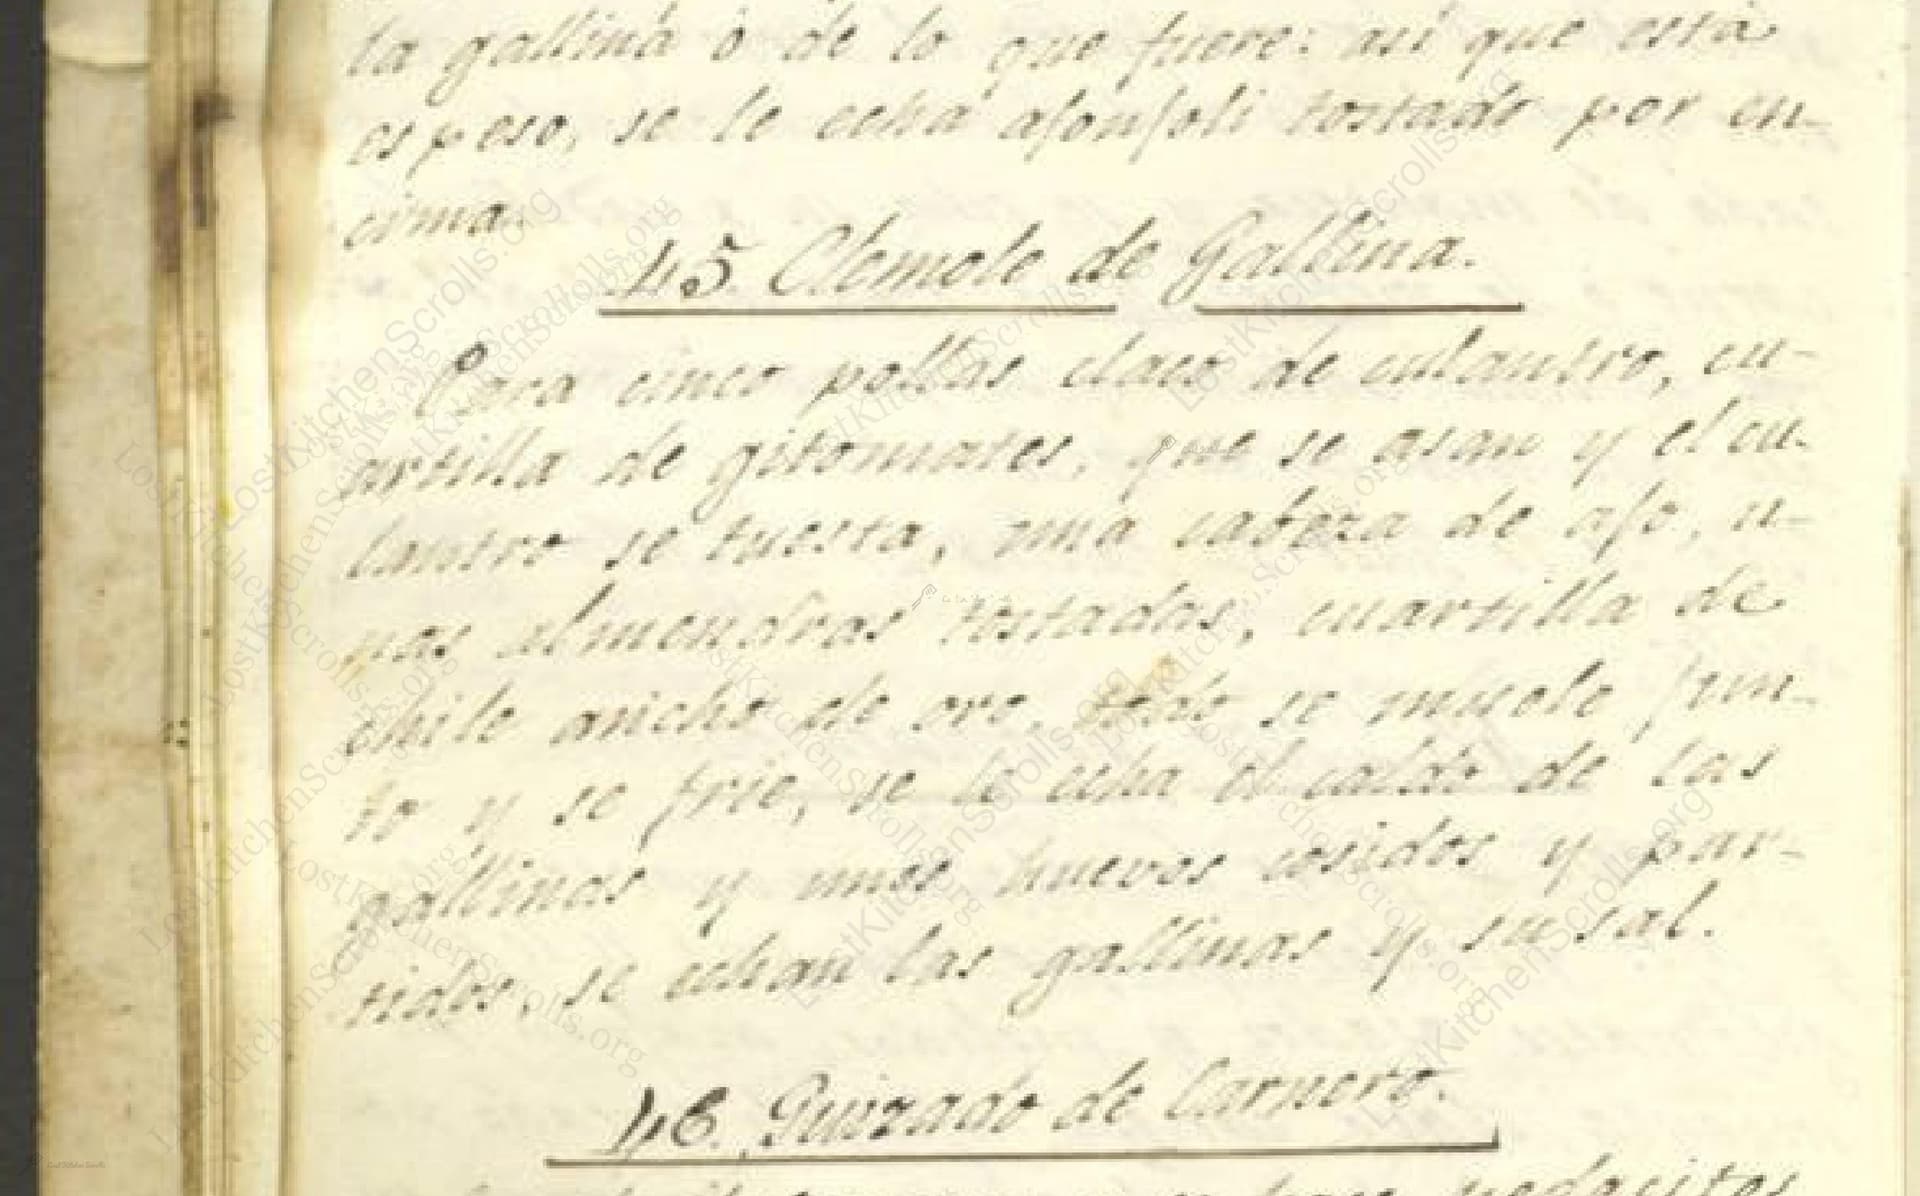 la gallina ó de lo que fuere: así que está
espeso, se le echa ajonjoli tostado por en-
cima.
45. Clemole de Gallina.
Para cinco pollas claco de culantro, cu-
artilla de gitomates, que se asan y el cu-
lantro se tuesta, una cabeza de ajo, u-
nas almendras tostadas, cuartilla de
chile ancho de oro, todo se muele jun-
to y se frie, se le echa el caldo de las
gallinas y unos huevos cosidos y par-
tidos, se echan las gallinas y su sal.
46. Guizado de Carnero.
pedacitos